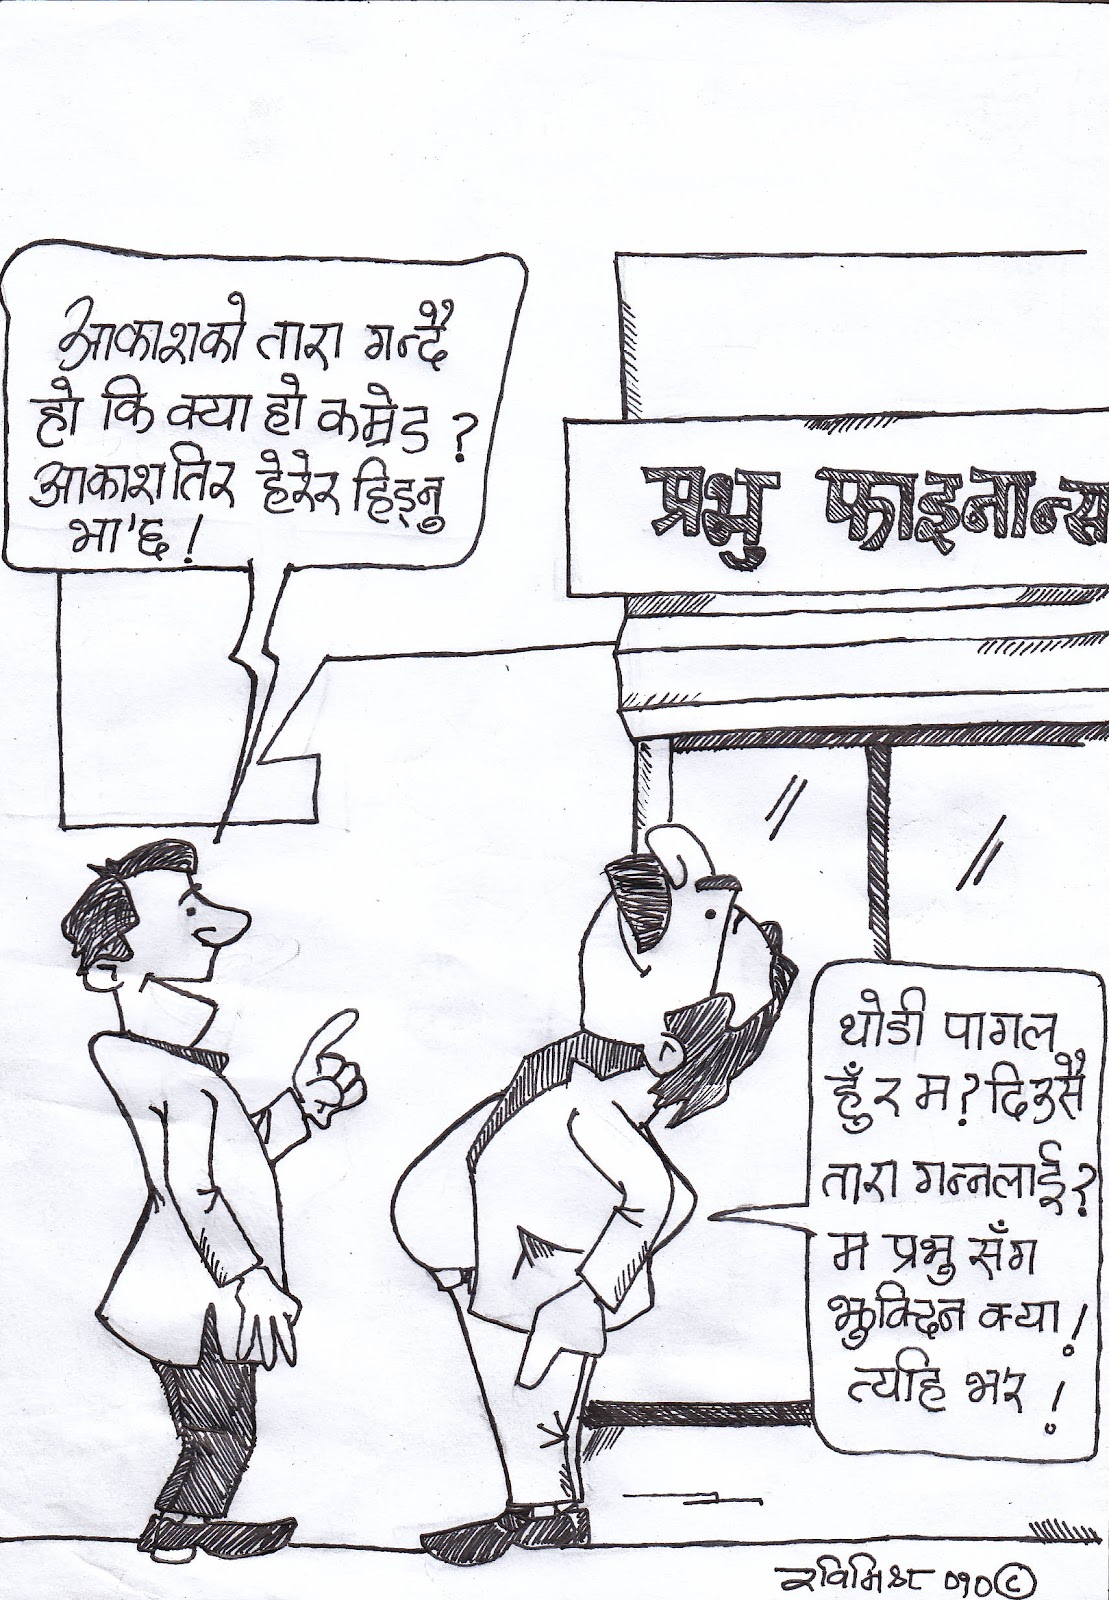 आकाशको तारा गन्दै
हो कि क्या हो कम्रेड ?
आकाश तिर हेरेर हिड्नु
भा'छ !
प्रभु फाइनान्स
थोडी पागल
हुँ र म ? दिउसै
तारा गन्नलाई ?
म प्रभु सँग
झुक्दिन क्या !
त्यहि भ'र !
रविमिश्र ०१० ©